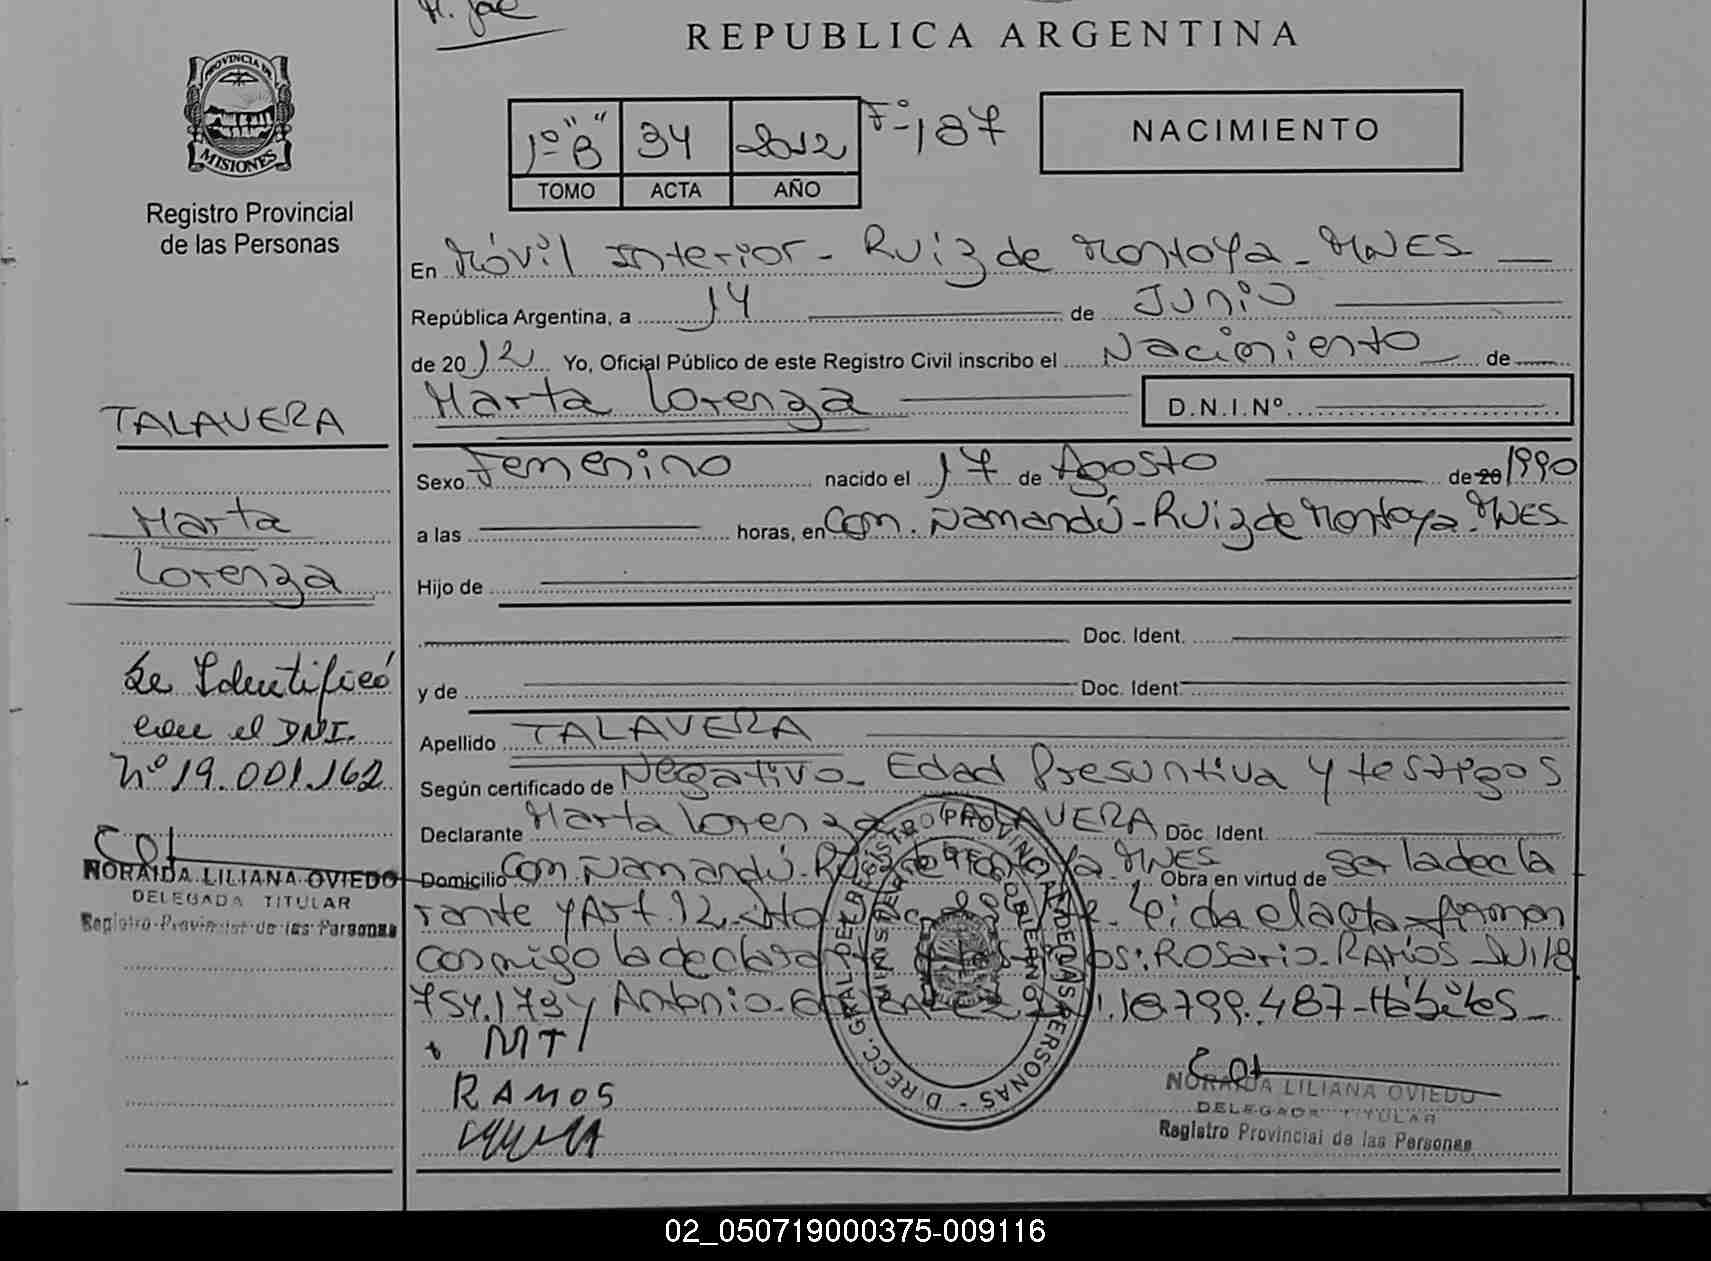 REPUBLICA ARGENTINA
PROVINCIA DE
MISIONES
Registro Provincial
de las Personas
1º "B" 34 2012 Fº-187
TOMO ACTA AÑO
NACIMIENTO
En Móvil Interior - Ruiz de Montoya - MNES
República Argentina, a 14 de Junio
de 2012 Yo, Oficial Público de este Registro Civil inscribo el Nacimiento de
Marta Lorenza D.N.I.Nº
TALAVERA
Marta
Lorenza
Sexo Femenino nacido el 17 de Agosto de 20 1990
a las horas, en Com. Ñamandú - Ruiz de Montoya - MNES
Hijo de
Doc. Ident.
y de Doc. Ident.
Se Identificó
con el DNI.
Nº 19.001.162
NORAIDA LILIANA OVIEDO
DELEGADA TITULAR
Registro Provincial de las Personas
Apellido TALAVERA
Según certificado de Negativo - Edad Presuntiva y testigos
Declarante Marta Lorenza TALAVERA Doc. Ident.
Domicilio Com. Ñamandú - Ruiz de Montoya MNES Obra en virtud de ser la decla
rante y Art. 12 Leida el acta firman
conmigo la declarante Rosario RAMOS DNI 18
754.173 y Antonio 18.799.487 - Hábiles
MTI
RAMOS
DIRECC. GRAL DEL REGISTRO PROVINCIAL DE LAS PERSONAS
NORAIDA LILIANA OVIEDO
DELEGADA TITULAR
Registro Provincial de las Personas
02_050719000375-009116